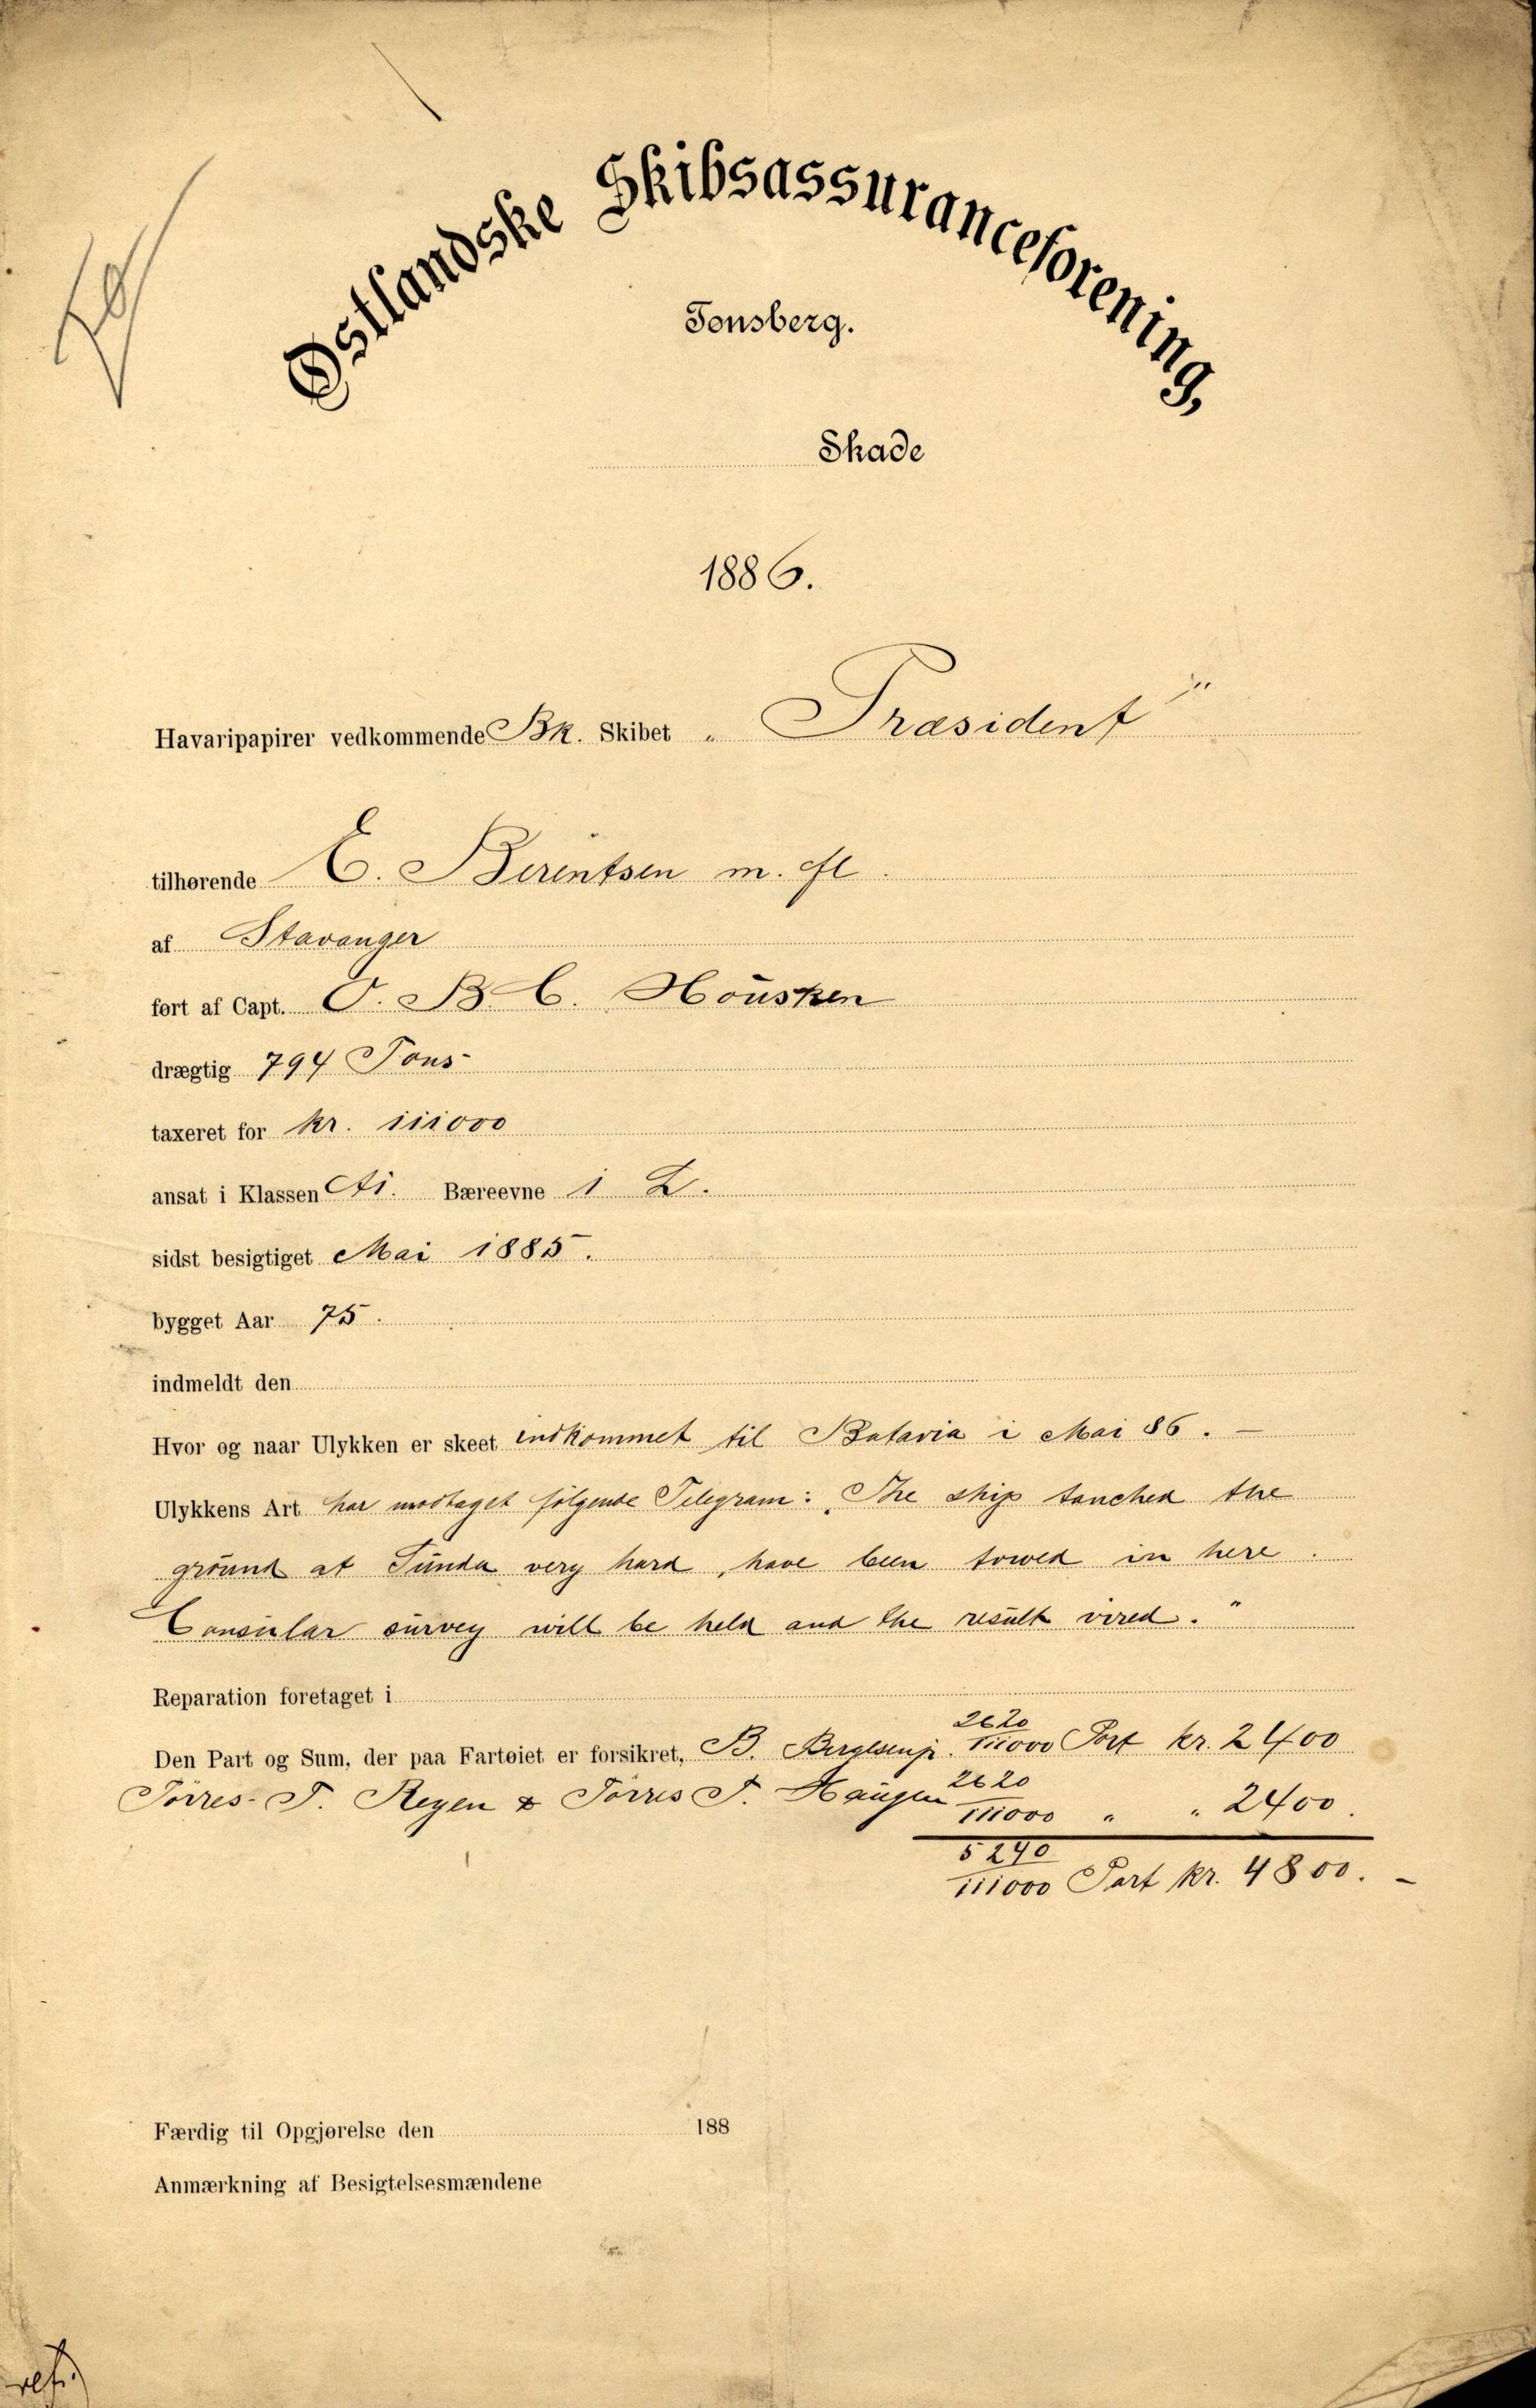 Østlandske Skibsassuranceforening,
Tønsberg.
Skade
1886.
Havaripapirer vedkommende Bk. Skibet „Præsident“
tilhørende E. Berentsen m. fl.
af Stavanger
ført af Capt. O. B. C. Housken
drægtig 794 Tons
taxeret for kr. 111000
ansat i Klassen A1. Bæreevne 1 L.
sidst besigtiget Mai 1885.
bygget Aar 75.
indmeldt den
Hvor og naar Ulykken er skeet indkommet til Batavia i Mai 86. —
Ulykkens Art har modtaget følgende Telegram: „The ship touched the
ground at Sunda very hard, have been towed in here.
Consular survey will be held and the result wired.“
Reparation foretaget i
Den Part og Sum, der paa Fartøiet er forsikret, B. jr. 2620/111000 Part kr. 2400
Törres T. & Törres T. Haugen 2620/111000 „ „ 2400.
5240/111000 Part kr. 4800. —
Færdig til Opgjørelse den 188
Anmærkning af Besigtelsesmændene